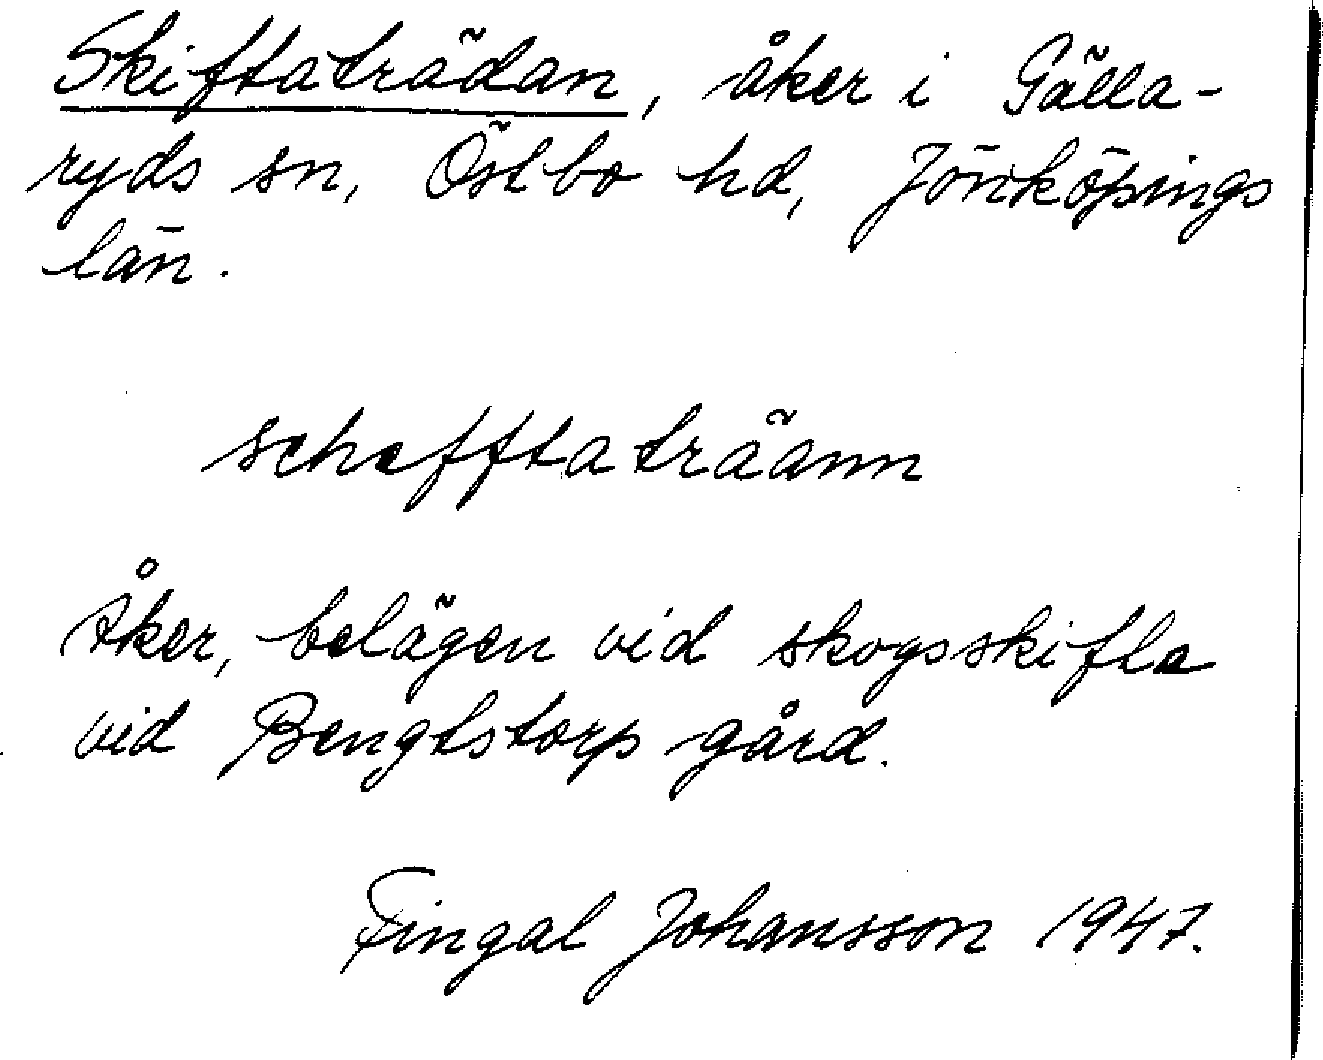 Skiftaträdan, åker i Gälla-
ryds sn, Östbo hd, Jönköpings
län.
scheftaträann
Åker, belägen vid skogsskifte
vid Bengtstorp gård.
Fingal Johansson 1947.